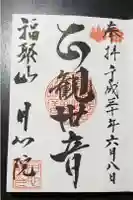 奉拝 平成三十年六月八日
大観世音
福聚山 月心院